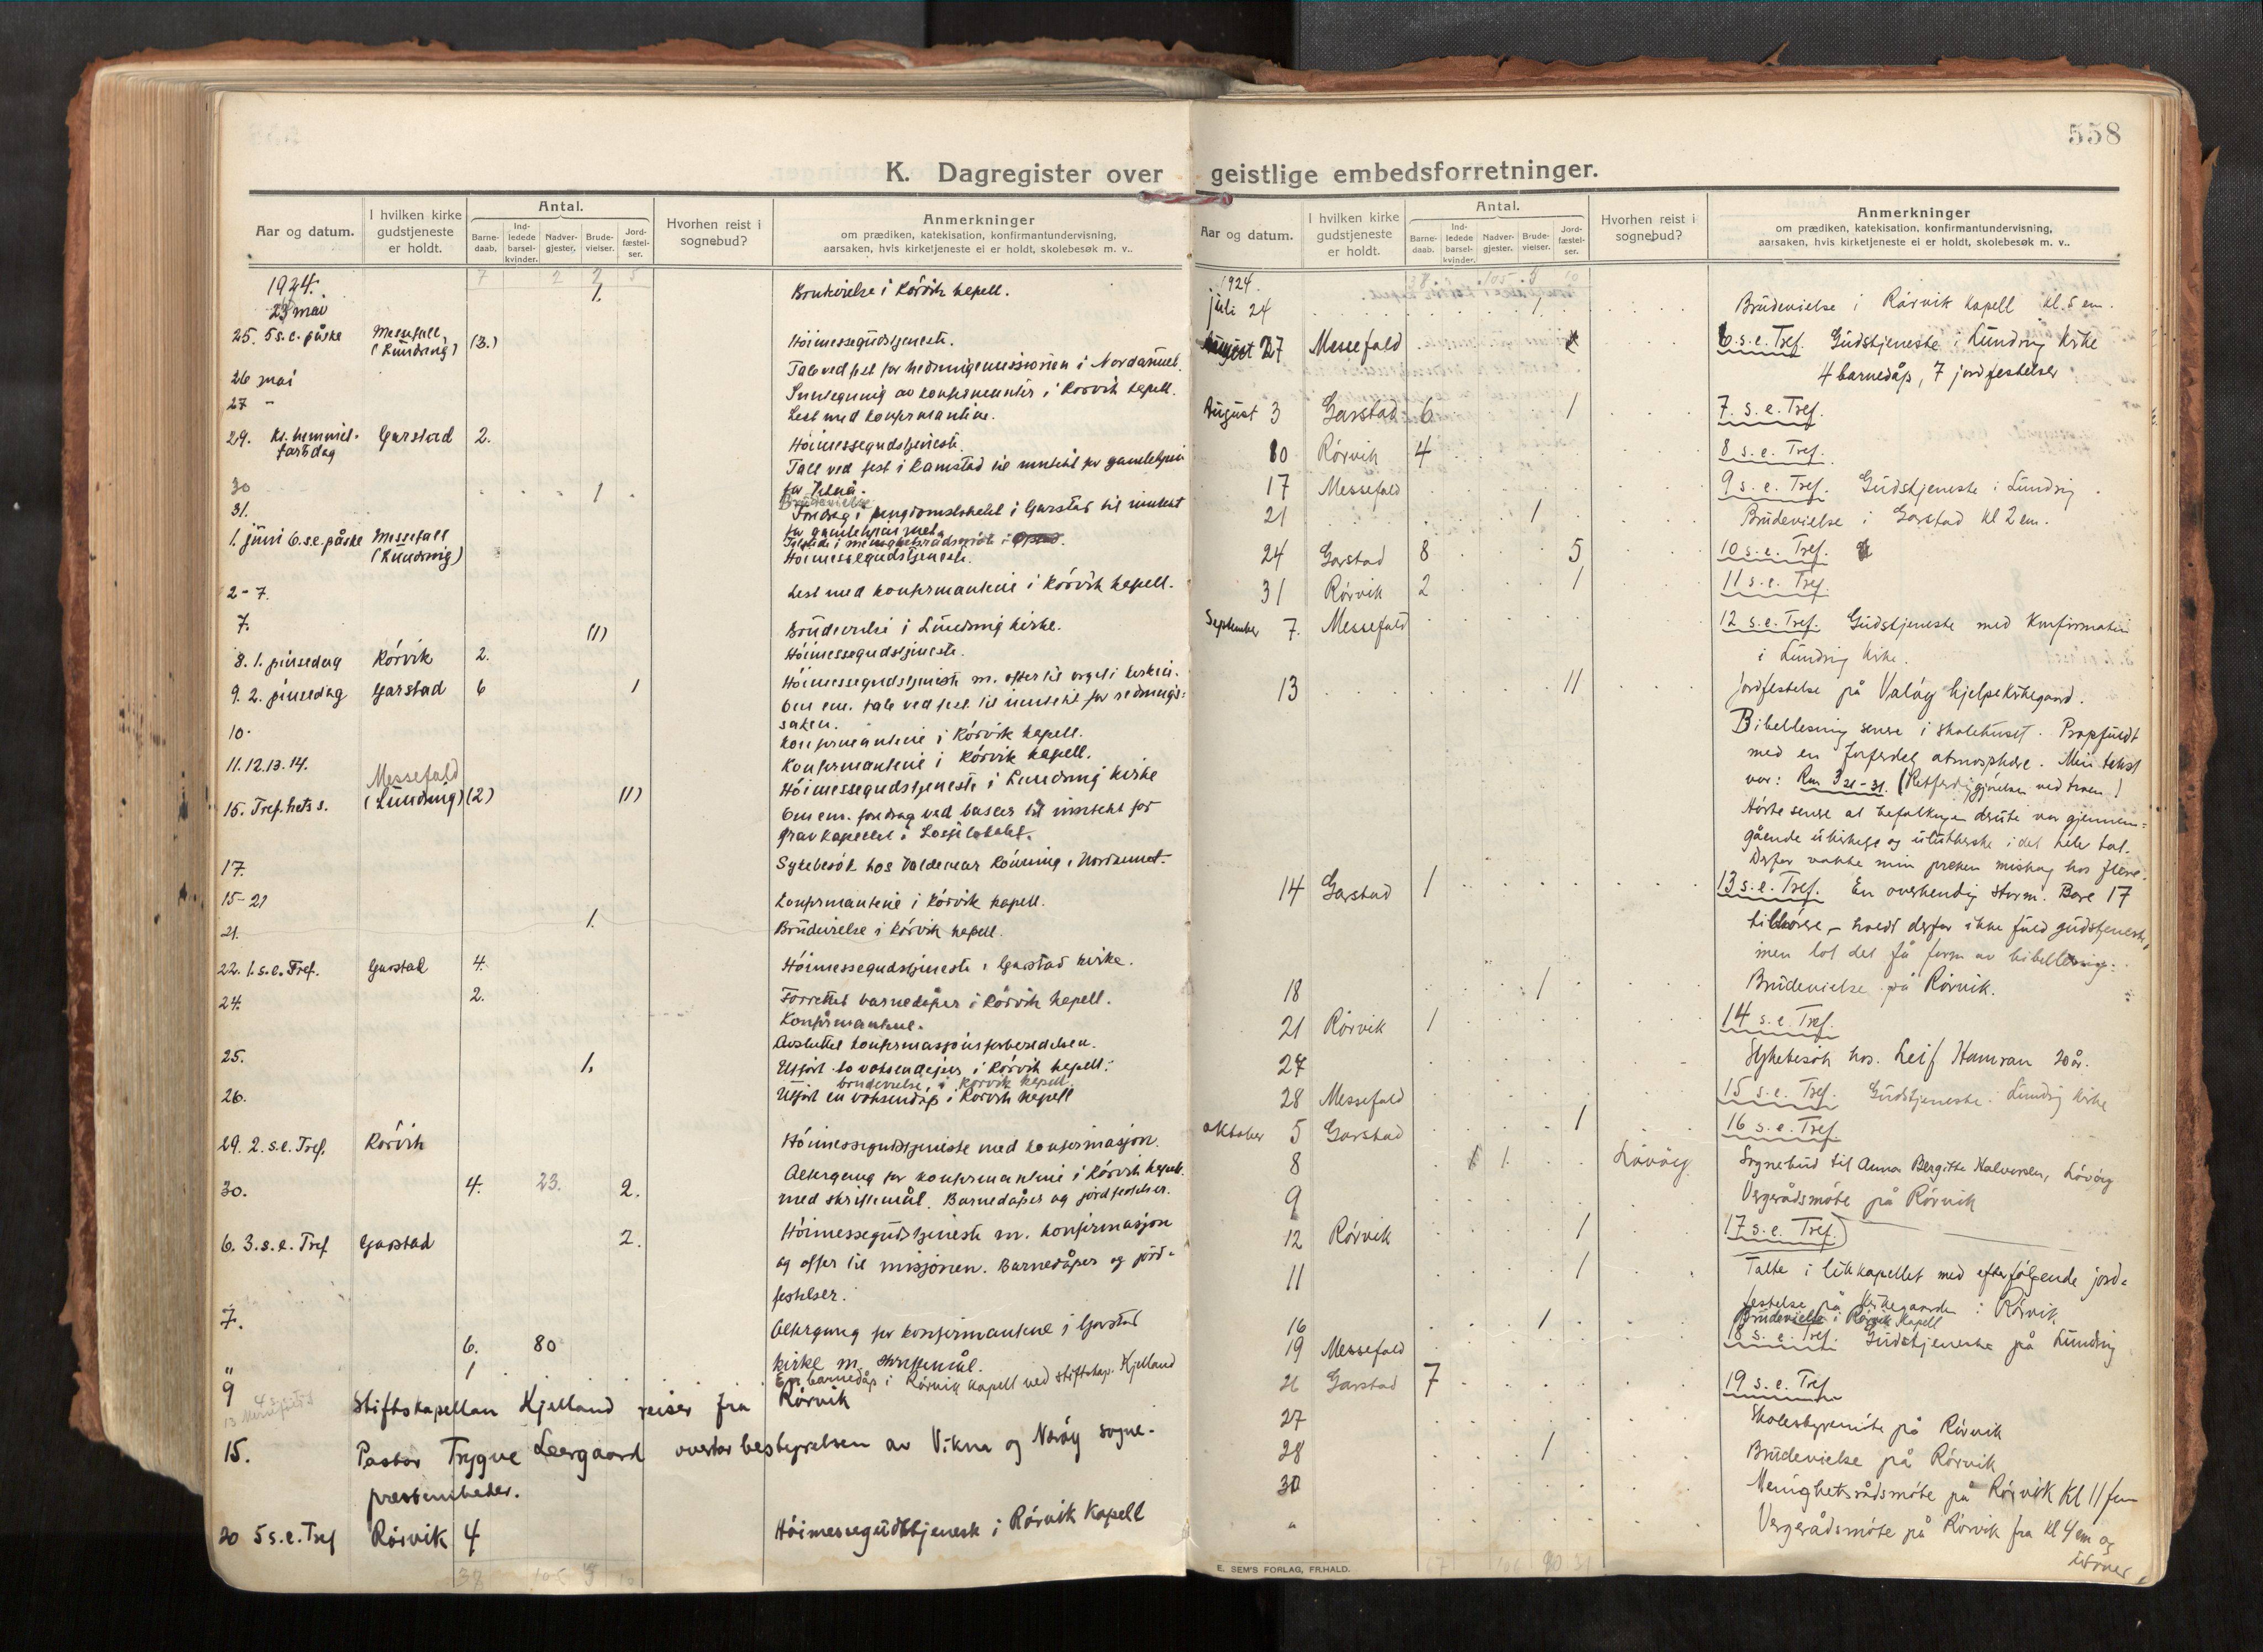 558
K. Dagregister over geistlige embedsforretninger.
Aar og datum.
I hvilken kirke gudstjeneste er holdt.
Antal.
Barne-daab.
Ind-ledede barsel-kvinder.
Nadver-gjester.
Brude-vielser.
Jord-fæstel-ser.
Hvorhen reist i sognebud?
Anmerkninger
om prædiken, katekisation, konfirmantundervisning,
aarsaken, hvis kirketjeneste ei er holdt, skolebesøk m. v..
7 2 2 5
1924.
23 mai 1. Brudevielse i Rórvik kapell.
25. 5 s.e. påske Messefall, (Lundring) (3.) Hóimessegudstjeneste.
26 mai Tale ved fest for hedningemissionen i Nordaunet.
27 - Innlegning av konfirmanter i Rórvik kapell.
Lest med konfirmantene.
29. Kr. himmel-fartsdag Garstad 2. Hóimessegudstjeneste.
Tale ved fest i Ramstad til inntekt for gamlehjem
for Vikna.
30 1 Brudevielse
31. Foredrag i ungdomslokalet i Garstad til inntekt
for gamlehjemmet.
1. juni 6.s.e. påske Messefall (Lundring) Hóimessegudstjeneste.
2-7. Lest med konfirmantene i Rórvik kapell.
7. (1) Brudevielse i Lundring kirke.
8. 1. pinsedag Rórvik 2. Hóimessegudstjeneste.
9. 2. pinsedag Garstad 6 1 Hóimessegudstjeneste m. offer til orgel i kirken.
Om em. tale ved fest til inntekt for rednings-
saken.
10. Konfirmantene i Rórvik kapell.
11. 12. 13. 14. Konfirmantene i Rórvik kapell.
15. Tref.hets s. Messefald (Lundring) (2) (1) Hóimessegudstjeneste i Lundring kirke
Om em. foredrag ved basar til inntekt for
gravkapellet i Losjelokalet.
17. Sykebesók hos Valdemar Rónning i Nordaunet.
15-21 Konfirmantene i Rórvik kapell.
21. 1. Brudevielse i Rórvik kapell.
22. 1. s.e. Tref. Garstad 4. Hóimessegudstjeneste i Garstad kirke.
24. 2. Forrettet barnedåper i Rórvik kapell.
Konfirmantene.
Avsluttet konfirmasjonsforberedelsen.
25. 1. Utfórt to voksendåper i Rórvik kapell.
brudevielse i Rórvik kapell.
26. Utfórt en voksendåp i Rórvik kapell
29. 2. s.e. Tref. Rórvik Hóimessegudstjeneste med konfirmasjon.
30. 4. 23. 2. Altergang for konfirmantene i Rórvik kapell.
med skriftemål. Barnedåper og jordfestelser.
6. 3. s.e. Tref Garstad 2. Hóimessegudstjeneste m. konfirmasjon
og offer til misjonen. Barnedåper og jord-
festelser.
7. 6. 80 Altergang for konfirmantene i Garstad
kirke m. skriftemål.
" 1 En barnedåp i Rórvik kapell ved stiftskap. Kjelland
9 Stiftskapellan Kjelland reiser fra Rórvik
15. Pastor Trygve Leergaard overtar bestyrelsen av Vikna og Nærøy sogne-
prestembeder.
20 5 s.e. Tref Rórvik 4 Hóimessegudstjeneste i Rórvik Kapell
Aar og datum.
I hvilken kirke gudstjeneste er holdt.
Antal.
Barne-daab.
Ind-ledede barsel-kvinder.
Nadver-gjester.
Brude-vielser.
Jord-fæstel-ser.
Hvorhen reist i sognebud?
Anmerkninger
om prædiken, katekisation, konfirmantundervisning,
aarsaken, hvis kirketjeneste ei er holdt, skolebesøk m. v..
1924
juli 24 1 Brudevielse i Rórvik kapell kl. 5 em.
27 Messefald 6. s.e. Tref. Gudstjeneste i Lundring kirke
4 barnedåp, 7 jordfestelser
August 3 Garstad 6 1 7. s.e. Tref.
10 Rórvik 4 8 s.e. Tref.
17 Messefald 9 s.e. Tref. Gudstjeneste i Lundring
21 1 Brudevielse i Garstad kl 2 em.
24 Garstad 8 5 10 s.e. Tref.
31 Rórvik 2 1 11 s.e. Tref.
September 7. Messefald 12 s.e. Tref. Gudstjeneste med konfirmation
i Lundring kirke.
13 11 Jordfestelse på Valóy hjelpekirkegaard.
Bibellesning senere i skolehuset. Propfuldt
med en forferdelig atmosphære. Min tekst
var: Rm 3 21-31. (Retferdiggjórelsen ved troen)
Hórte senere at befolkningen derute var gjennem-
gående ukirkelig og uluthersk i det hele tat.
Derfor vakte min preken mishag hos flere.
14 Garstad 1 13 s.e. Tref. En overhendig storm. Bare 17
tilhórere, - holdt derfor ikke fuld gudstjeneste,
men lot det få form av bibellesning.
18 1 Brudevielse på Rórvik.
21 Rórvik 1 14 s.e. Tref.
27 Sykebesók hos Leif Hamran 20 år.
28 Messefald 15 s.e. Tref. Gudstjeneste i Lundring kirke
Oktober 5 Garstad 1 16 s.e. Tref.
8 1 1 Lóvóy Sognebud til Anna Bergitte Halvorsen, Lóvóy
9 Vergerådsmóte på Rórvik
12 Rórvik 1 17 s.e. Tref.
11 1 Talte i likkapellet med efterfólgende jord-
festelse på kirkegaarden i Rórvik.
16 1 Brudevielse i Rórvik Kapell
19 Messefald 18 s.e. Tref. Gudstjeneste på Lundring
26 Garstad 7 19 s.e. Tref
27 Skolestyremóte på Rórvik
28 1 Brudevielse på Rórvik
30 Menighetsrådsmóte på Rórvik kl 11 fm
" Vergerådsmóte på Rórvik fra kl 4 em og
utover
E. SEM'S FORLAG, FR.HALD.